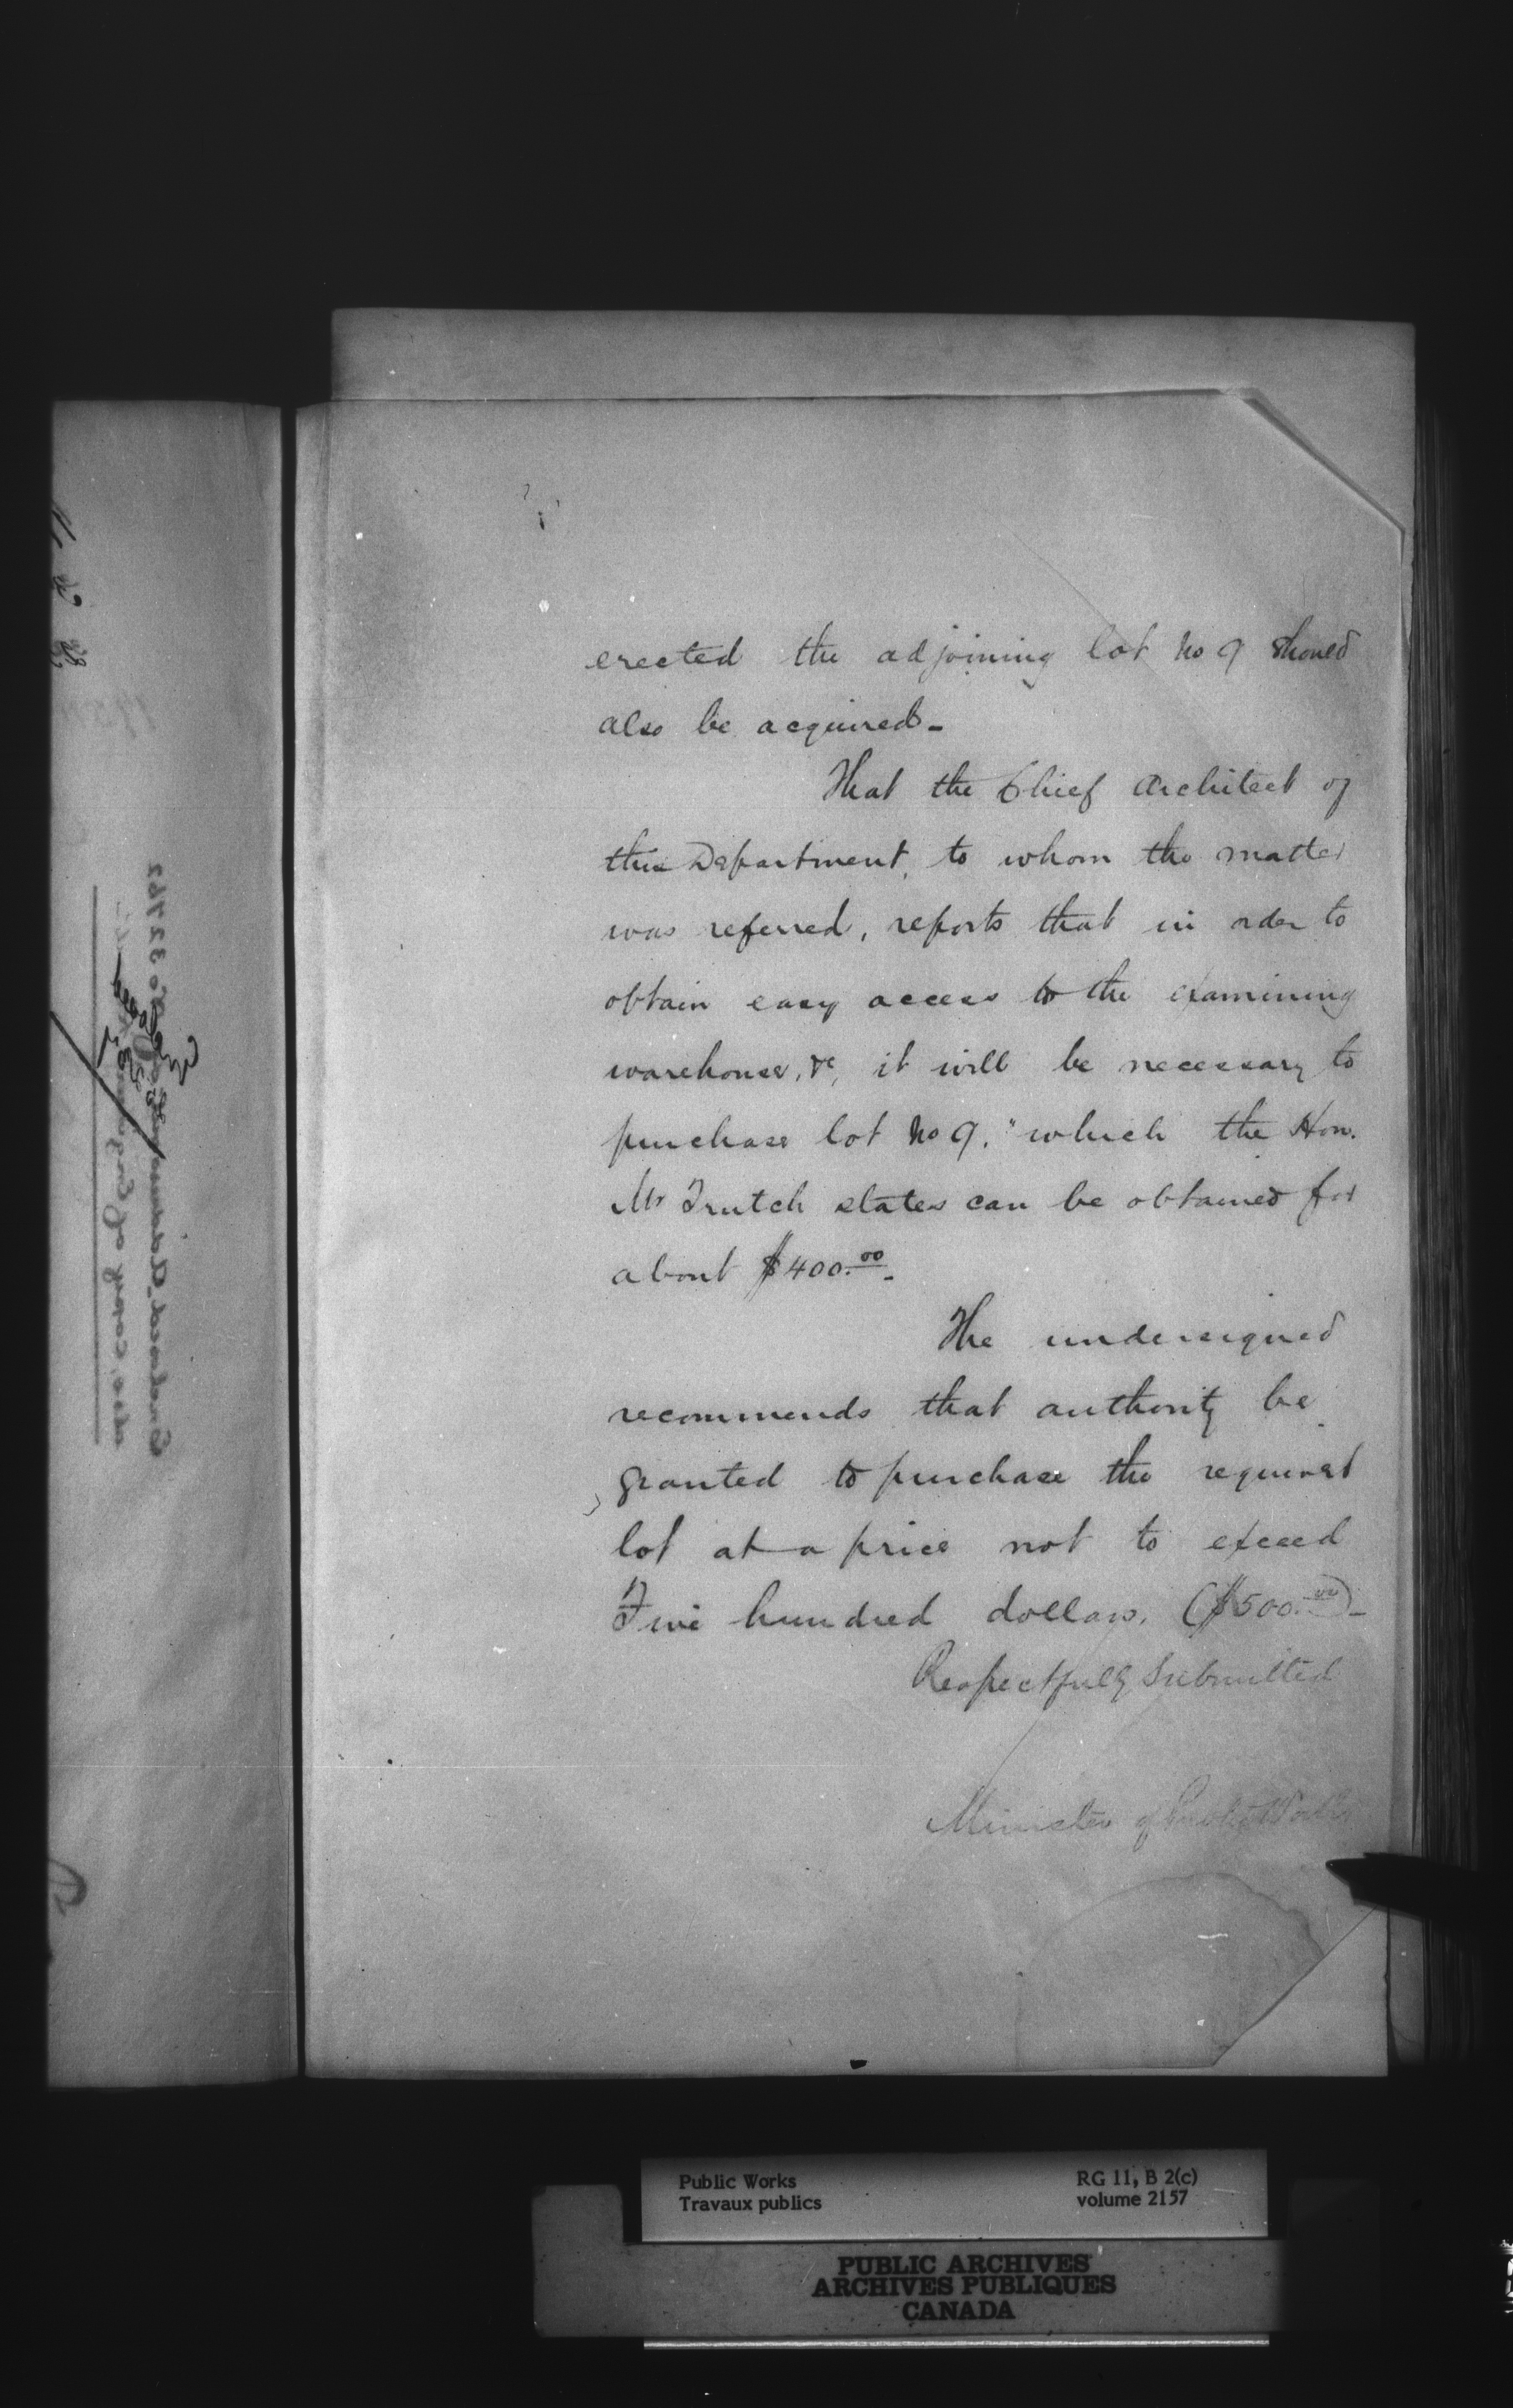 erected the adjoining lot No 9 should
also be acquired -
That the Chief Architect of
this Department, to whom the matter
was referred, reports that in order to
obtain easy access to the examining
warehouse, &c, it will be necessary to
purchase lot No 9, "which the Hon.
Mr Trutch states can be obtained for
about $400.00 -
The undersigned
recommends that authority be
granted to purchase the required
lot at a price not to exceed
Five hundred dollars. ($500.00) -
Respectfully Submitted
Minister of Public Works
Public Works
Travaux publics
RG 11, B 2(c)
volume 2157
PUBLIC ARCHIVES
ARCHIVES PUBLIQUES
CANADA